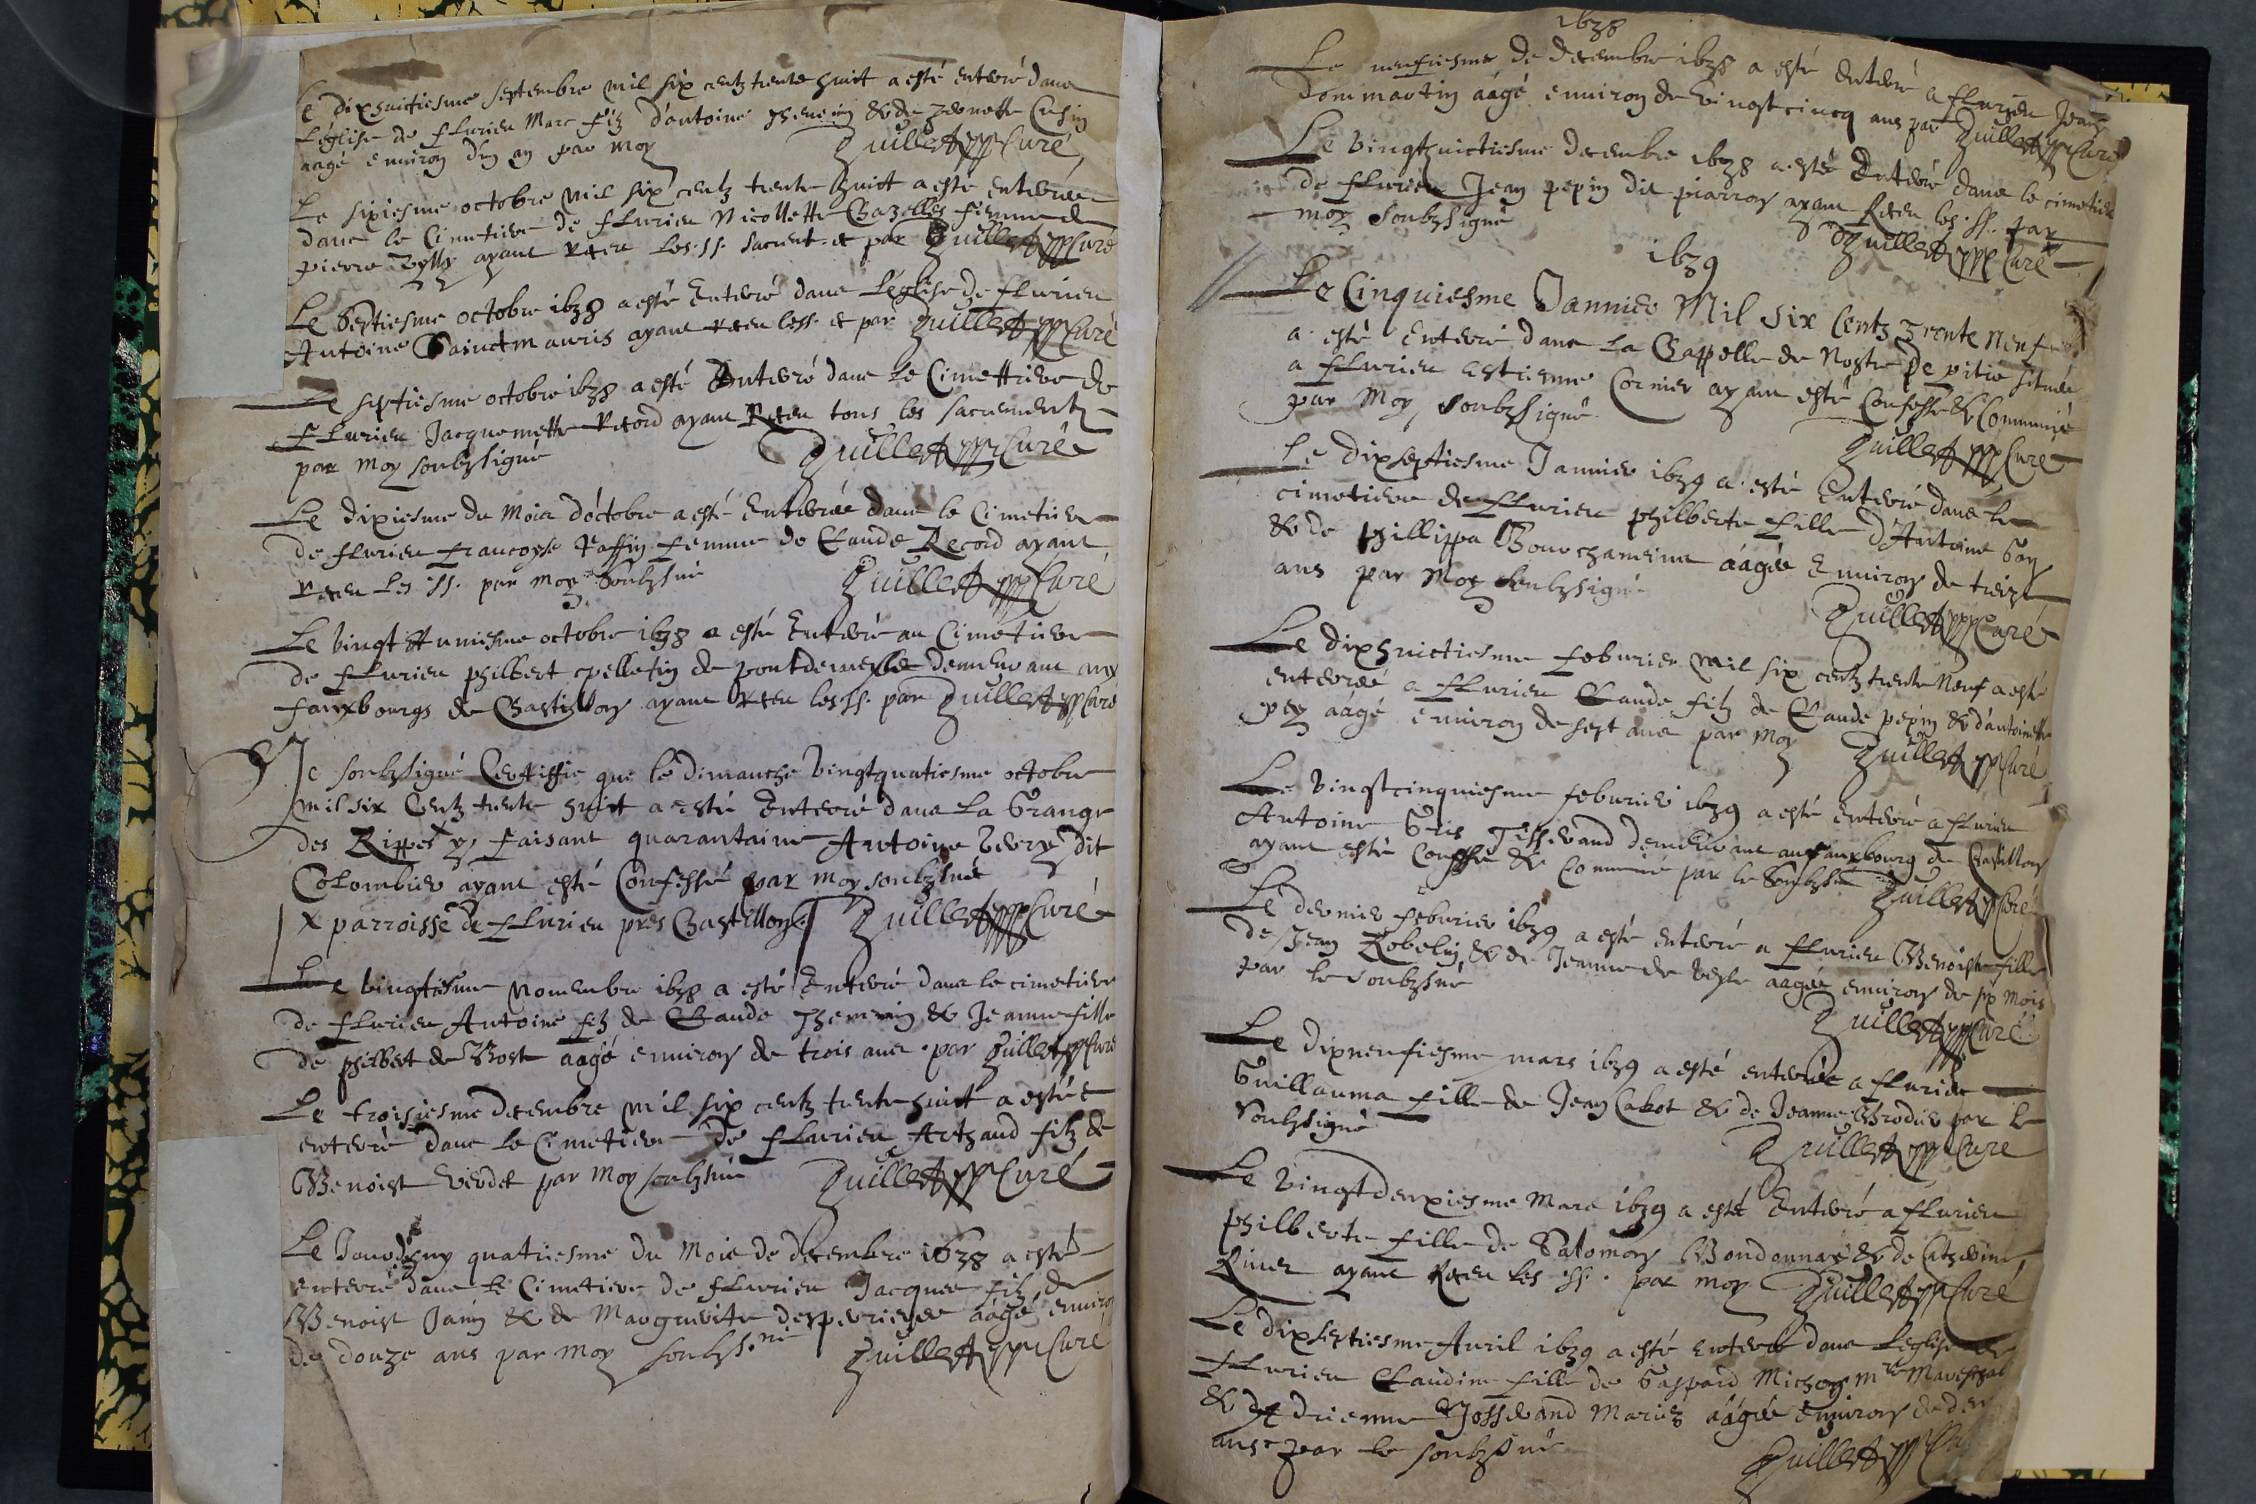 Le dixhuictiesme septembre mil six centz trente huict a esté enterré dans
l'églize de Flurieu Marc filz d'antoine Thenein & de Pernette Cusin
aagé environ d'un an par moy Zuillet ppp Curé
Le sixiesme octobre mil six centz trente huict a esté enterrée
dans le Cimetiere de Flurieu Nicollette Chazelles femme de
pierre ayant receu les ss. sacrent. et par Zuillet ppp Curé
Le septiesme octobre 1638 a esté Enterré dans L'églize de Flurieu
Antoine Sainctmauris ayant receu les ss. et par Zuillet ppp Curé
Le septiesme octobre 1638 a esté Enterré dans le Cimettiere de
Flurieu Jacquemette Record ayant Receu tous les sacrementz
par moy soubzsigné Zuillet ppp Curé
Le dixiesme du Mois d'octobre a esté Enterrée dans le Cimetiere
de Flurieu Francoyse Raffin femme de Claude Record ayant
receu les ss. par moy Soubzsné Zuillet ppp Curé
Le vingt et uniesme octobre 1638 a esté Enterré au Cimetiere
de Flurieu philbert pelletin de pontdevesle demeurant aux
fauxbourgs de Chastillon ayant receu les ss. par Zuillet ppp Curé
Je soubzsigné Certiffie que le dimanche vingtquatiesme octobre
mil six Centz trente huict a esté Enterré dans la Grange
des Rippes x y faisant quarantaine Antoine Verry dit
Colombier ayant esté Confessé par moy soubzsné
x parroisse de Flurieu pres Chastillon Zuillet ppp Curé
Le vingtiesme Novembre 1638 a esté Enterré dans le cimetiere
de Flurieu Antoine filz de Claude Thenein & Jeanne fille
de philbert de Bost aagé environ de trois ans par Zuillet ppp Curé
Le troisiesme decembre mil six centz trente huict a esté
enterré dans le Cimetiere de Flurieu Arthaud filz de
Benoist Verdet par moy soubzsné Zuillet ppp Curé
Le quatiesme du Mois de decembre 1638 a esté
enterré dans le Cimetiere de Flurieu Jacques filz de
Benoist Janin & de Marguerite desperrieres aagé environ
de douze ans par moy soubzs.né Zuillet ppp Curé
1638
Le neufiesme de decembre 1638 a esté Enterré a Flurieu Jean
Dommartin aagé environ de vingt cincq ans par Zuillet ppp Curé
Le vingthuictiesme decembre 1638 a esté Enterré dans le cimetiere
de Flurieu Jean pepin dit piarron ayant Receu les ss. par
moy Soubzsigné Zuillet ppp Curé
1639
Le Cinquiesme Janvier Mil Six Centz Trente Neuf
a esté Enterré dans La Chappelle de Nostre De pitie située
a Flurieu Estienne Cornier ayant esté Confesse & Communié
par Moy soubzsigné Zuillet ppp Curé
Le dixseptiesme Janvier 1639 a esté Enterré dans le
cimetiere de Flurieu philberte fille d'Antoine Gon
& de phillippa Bourchannine aagée Environ de treize
ans par Moy soubzsigné Zuillet ppp Curé
Le dixhuictiesme feburier mil six centz trente Neuf a esté
enterré a Flurieu Claude filz de Claude pepin & d'antoinette
pey aagé environ de sept ans par moy Zuillet ppp Curé
Le vingtcinquiesme feburier 1639 a esté enterré a Flurieu
Antoine Gris Tisserand demeurant au fauxbourg de Chastillon
ayant esté Confessé & Communié par le Soubzsné Zuillet ppp Curé
Le dernier feburier 1639 a esté enterré a Flurieu Benoiste fille
de Jean Robelin & de Jeanne de Vesle aagée environ de six mois
par le soubzsné Zuillet ppp Curé
Le dixneufiesme mars 1639 a esté enterrée a Flurieu
Guillauma fille de Jean Cabot & de Jeanne Brodier par le
Soubzsigné Zuillet ppp Curé
Le vingtdeuxiesme Mars 1639 a esté Enterré a Flurieu
philberte fille de Salomon Bondonnat & de Catherine
River ayant Receu les ss. par moy Zuillet ppp Curé
Le dixseptiesme Avril 1639 a esté enterré dans l'eglise de
Flurieu Claudine fille de Gaspard Michon Mre Mareschal
& de drienne Josserand Mariez aagée environ de deux
ans par le soubzsné Zuillet ppp Cu